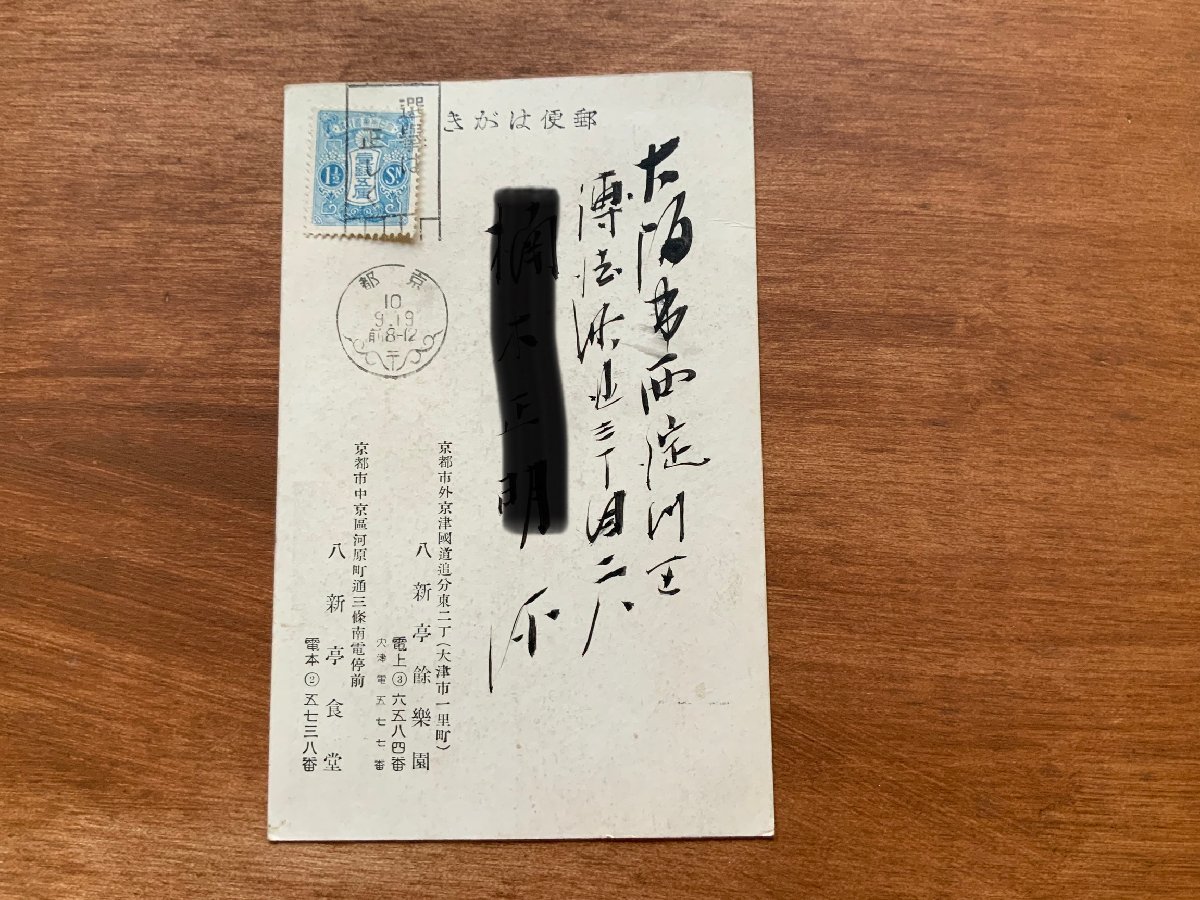 郵便はがき
大阪市西淀川区
傳法 三丁目二八
様
選挙は
正しく
1½ Sn
京都
10
9.19
前8-12
京都市外京津國道追分東二丁(大津市一里町)
八新亭餘樂園
電上③六五八四番
大津電五七七番
京都市中京區河原町通三條南電停前
八新亭食堂
電本②五七三八番